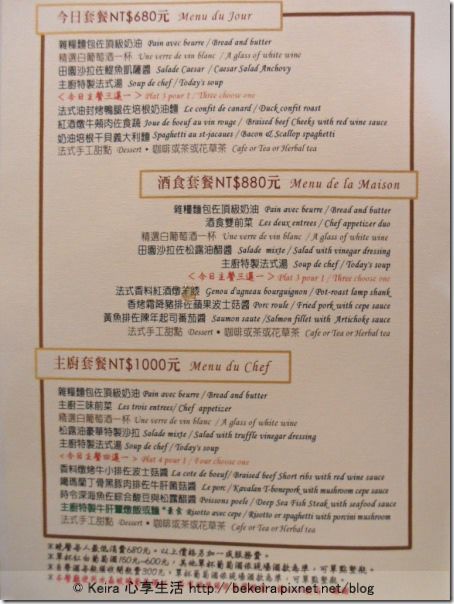 今日套餐NT$680元 Menu du Jour
雜糧麵包佐頂級奶油 Pain avec beurre / Bread and butter
精選白葡萄酒一杯 Une verre de vin blanc / A glass of white wine
田園沙拉佐鯷魚凱薩醬 Salade Caesar / Caesar Salad Anchovy
主廚特製法式湯 Soup de chef / Today's soup
<今日主餐三選一> Plat 3 pour 1 / Three choose one
法式油封烤鴨腿佐培根奶油麵 Le confit de canard / Duck confit roast
紅酒燉牛頰肉佐食蔬 Joue de boeuf au vin rouge / Braised beef Cheeks with red wine sauce
奶油培根干貝義大利麵 Spaghetti au st-jacaues / Bacon & Scallop spaghetti
法式手工甜點 Dessert • 咖啡或茶或花草茶 Cafe or Tea or Herbal tea
酒食套餐NT$880元 Menu de la Maison
雜糧麵包佐頂級奶油 Pain avec beurre / Bread and butter
酒食雙前菜 Les deux entrees / Chef appetizer duo
精選白葡萄酒一杯 Une verre de vin blanc / A glass of white wine
田園沙拉佐松露油醋醬 Salade mixte / Salad with vinegar dressing
主廚特製法式湯 Soup de chef / Today's soup
<今日主餐三選一> Plat 3 pour 1 / Three choose one
法式香料紅酒燉羊膝 Genou d'agneau bourguignon / Pot-roast lamp shank
香烤霜降豬排佐蘋果波士菇醬 Porc roule / Fried pork with cepe sauce
黃魚排佐陳年起司番茄醬 Saumon saute / Salmon fillet with Artichoke sauce
法式手工甜點 Dessert • 咖啡或茶或花草茶 Cafe or Tea or Herbal tea
主廚套餐NT$1000元 Menu du Chef
雜糧麵包佐頂級奶油 Pain avec beurre / Bread and butter
主廚三昧前菜 Les trois entrees / Chef appetizer
精選白葡萄酒一杯 Une verre de vin blanc / A glass of white wine
松露油豪華特製沙拉 Salade mixte / Salad with truffle vinegar dressing
主廚特製法式湯 Soup de chef / Today's soup
<今日主餐四選一> Plat 4 pour 1 / Four choose one
香料燉烤牛小排佐波士菇醬 La cote de boeuf / Braised beef Short ribs with red wine sauce
鐵瑪蘭丁骨黑豚肉排佐牛肝菌菇醬 Le porc / Kavalan T-bonepork with mushroom cepe sauce
時令深海魚佐綜合酸豆與松露醋醬 Poissons poele / Deep Sea Fish Steak with seafood sauce
主廚特製牛肝蕈燉飯或麵*素食 Risotto avec cepe / Risotto or spaghetti with porcini mushroom
法式手工甜點 Dessert • 咖啡或茶或花草茶 Cafe or Tea or Herbal tea
※晚餐每人最低消費680元。以上價格另加一成服務費。
© Keira 心享生活 http://bekeira.pixnet.net/blog